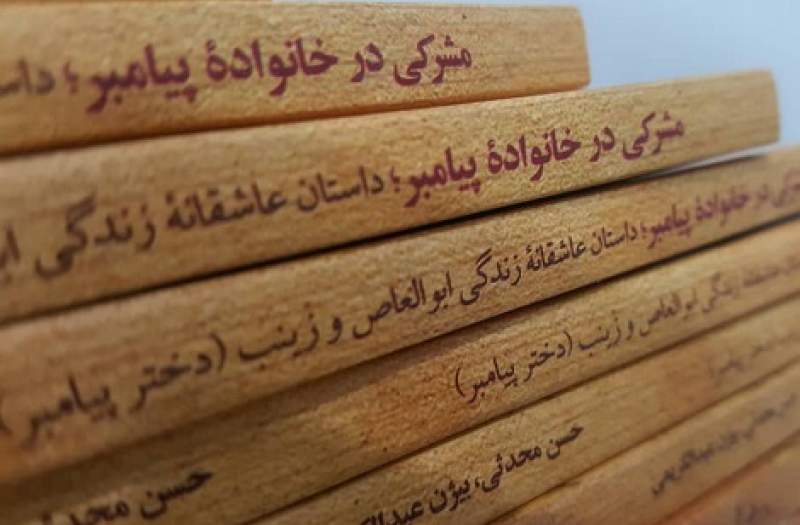 مشرکی در خانوادهٔ پیامبر؛
مشرکی در خانوادهٔ پیامبر؛ داستان عاشقانهٔ زندگی
خانوادهٔ پیامبر؛ داستان عاشقانهٔ زندگی ابوالعاص و زینب (دختر پیامبر)
زندگی ابوالعاص و زینب (دختر پیامبر)
حسن محدثی، بیژن
حسن